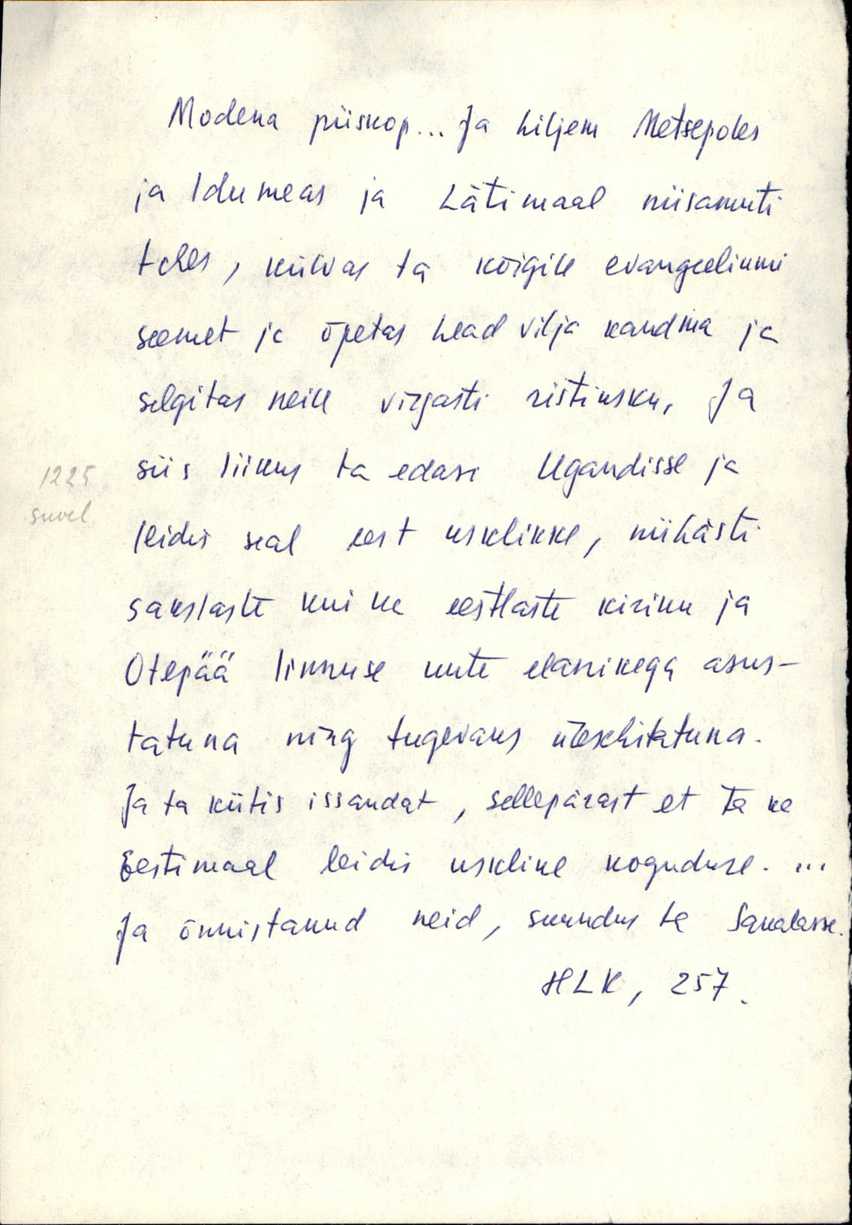 Modena piiskop... Ja hiljem Metsepoles
ja Idumeas ja Lätimaal niisamuti
tehes, külvas ta kõigile evangeeliumi
seemet ja õpetas head vilja kandma ja
selgitas neile virgasti ristiusku, Ja
siis liikus ta edasi Ugandisse ja
1225
suvel
leidis seal eest usklikke, niihästi
sakslaste kui ka eestlaste kiriku ja
Otepää linnuse uute elanikega asus-
tatuna ning tugevaks ülesehitatuna.
Ja ta kiitis issandat, sellepärast et ta ka
Eestimaal leidis uskliku koguduse. ...
Ja õnnistanud neid, suundus ta Sakalasse.
HLK, 257.